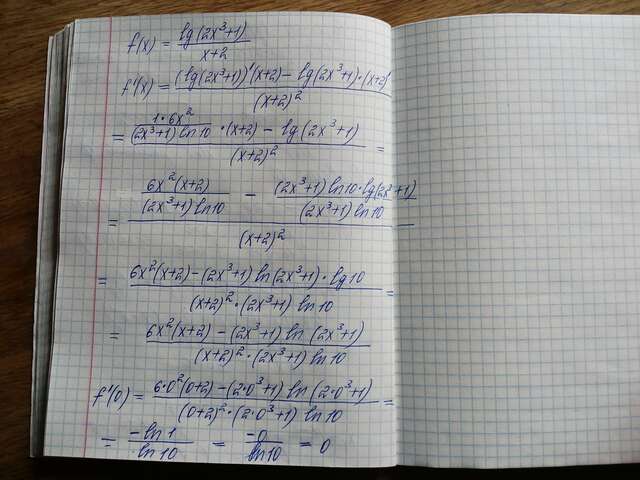 f(x) = lg(2x³+1) / x+2
f'(x) = (lg(2x³+1))'(x+2) - lg(2x³+1)·(x+2)' / (x+2)²
= 1·6x² / (2x³+1) ln10 ·(x+2) - lg(2x³+1) / (x+2)² =
= 6x²(x+2) / (2x³+1) ln10 - (2x³+1) ln10·lg(2x³+1) / (2x³+1) ln10 / (x+2)²
= 6x²(x+2) - (2x³+1) ln(2x³+1)·lg10 / (x+2)²·(2x³+1) ln10 =
= 6x²(x+2) - (2x³+1) ln(2x³+1) / (x+2)²·(2x³+1) ln10
f'(0) = 6·0²(0+2) - (2·0³+1) ln(2·0³+1) / (0+2)²·(2·0³+1) ln10 =
= -ln1 / ln10 = -0 / ln10 = 0